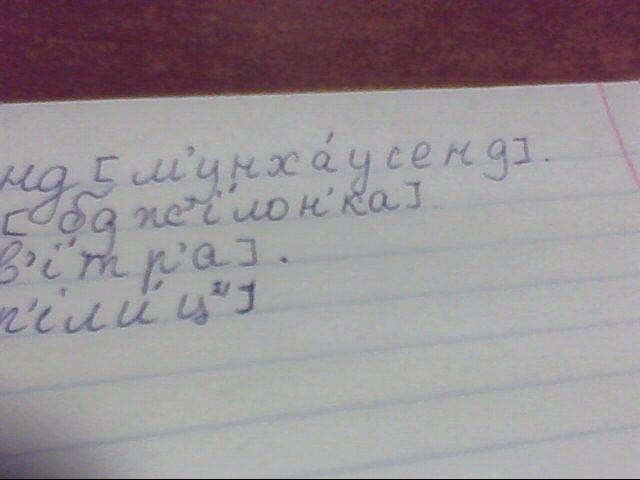 нд [м'унха́усенд].
[бдж'і́лон'ка]
в'і́тр'а].
п'іли́ц'']